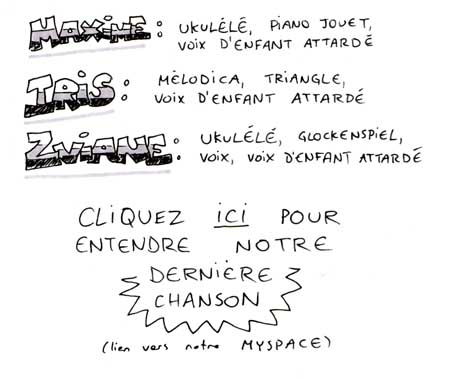 MAXIME: UKULÉLÉ, PIANO JOUET,
VOIX D'ENFANT ATTARDÉ
TRIS: MÉLODICA, TRIANGLE,
VOIX D'ENFANT ATTARDÉ
ZVIANE: UKULÉLÉ, GLOCKENSPIEL,
VOIX, VOIX D'ENFANT ATTARDÉ
CLIQUEZ ICI POUR
ENTENDRE NOTRE
DERNIÈRE
CHANSON
(lien vers notre MYSPACE)